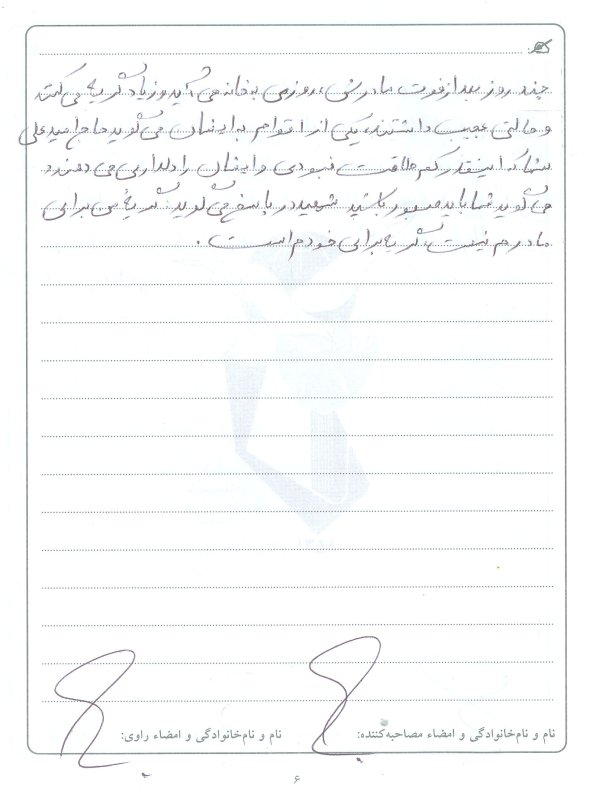 چند روز بعد از فوت مادرش، روزی به خانه می آید و زیاد گریه می کند
و حالتی عجیب داشتند، یکی از اقوام به ایشان می گوید حاج امیدعلی
شما که اینقدر کم طاقت نبودی و ایشان را دلداری می دهند و
می گوید شما باید صبور باشید شهید در پاسخ می گوید: گریهٔ من برای
مادرم نیست، گریه برای خودم است.
نام و نام‌خانوادگی و امضاء مصاحبه‌کننده: نام و نام‌خانوادگی و امضاء راوی:
۶